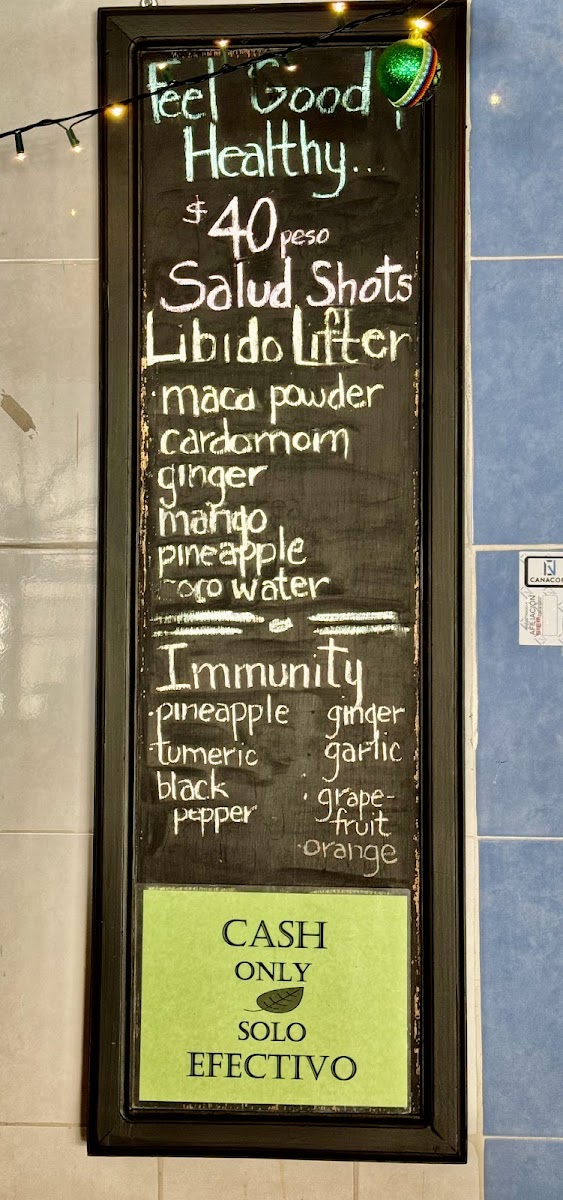 Feel Good,
Healthy...
$40 peso
Salud Shots
Libido Lifter
maca powder
cardomom
ginger
mango
pineapple
coco water
Immunity
pineapple
tumeric
black
pepper
ginger
garlic
grape-
fruit
orange
CASH
ONLY
SOLO
EFECTIVO
AFILIACION